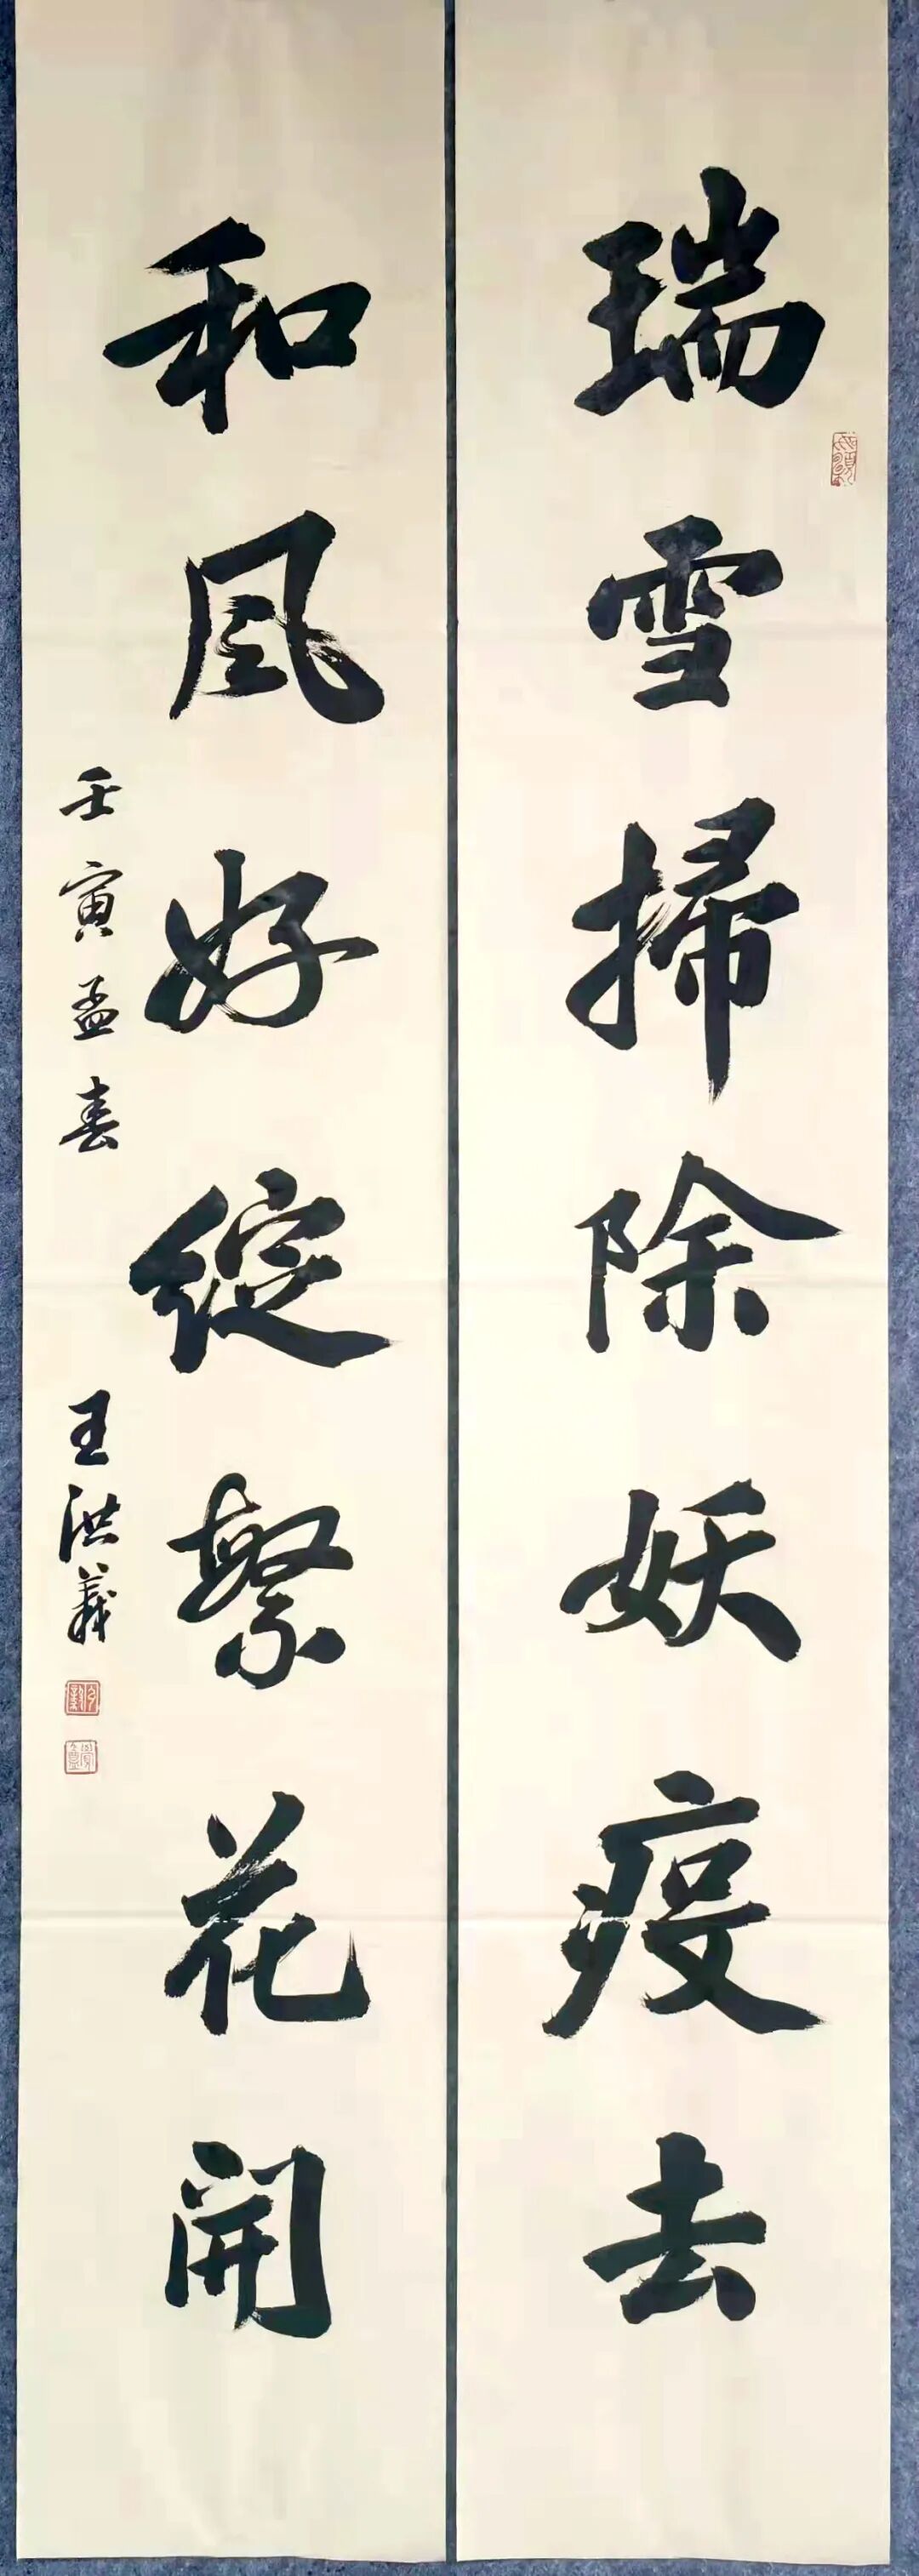 瑞雪掃除妖疫去
和风好綻繁花開
壬寅孟春 王洪義